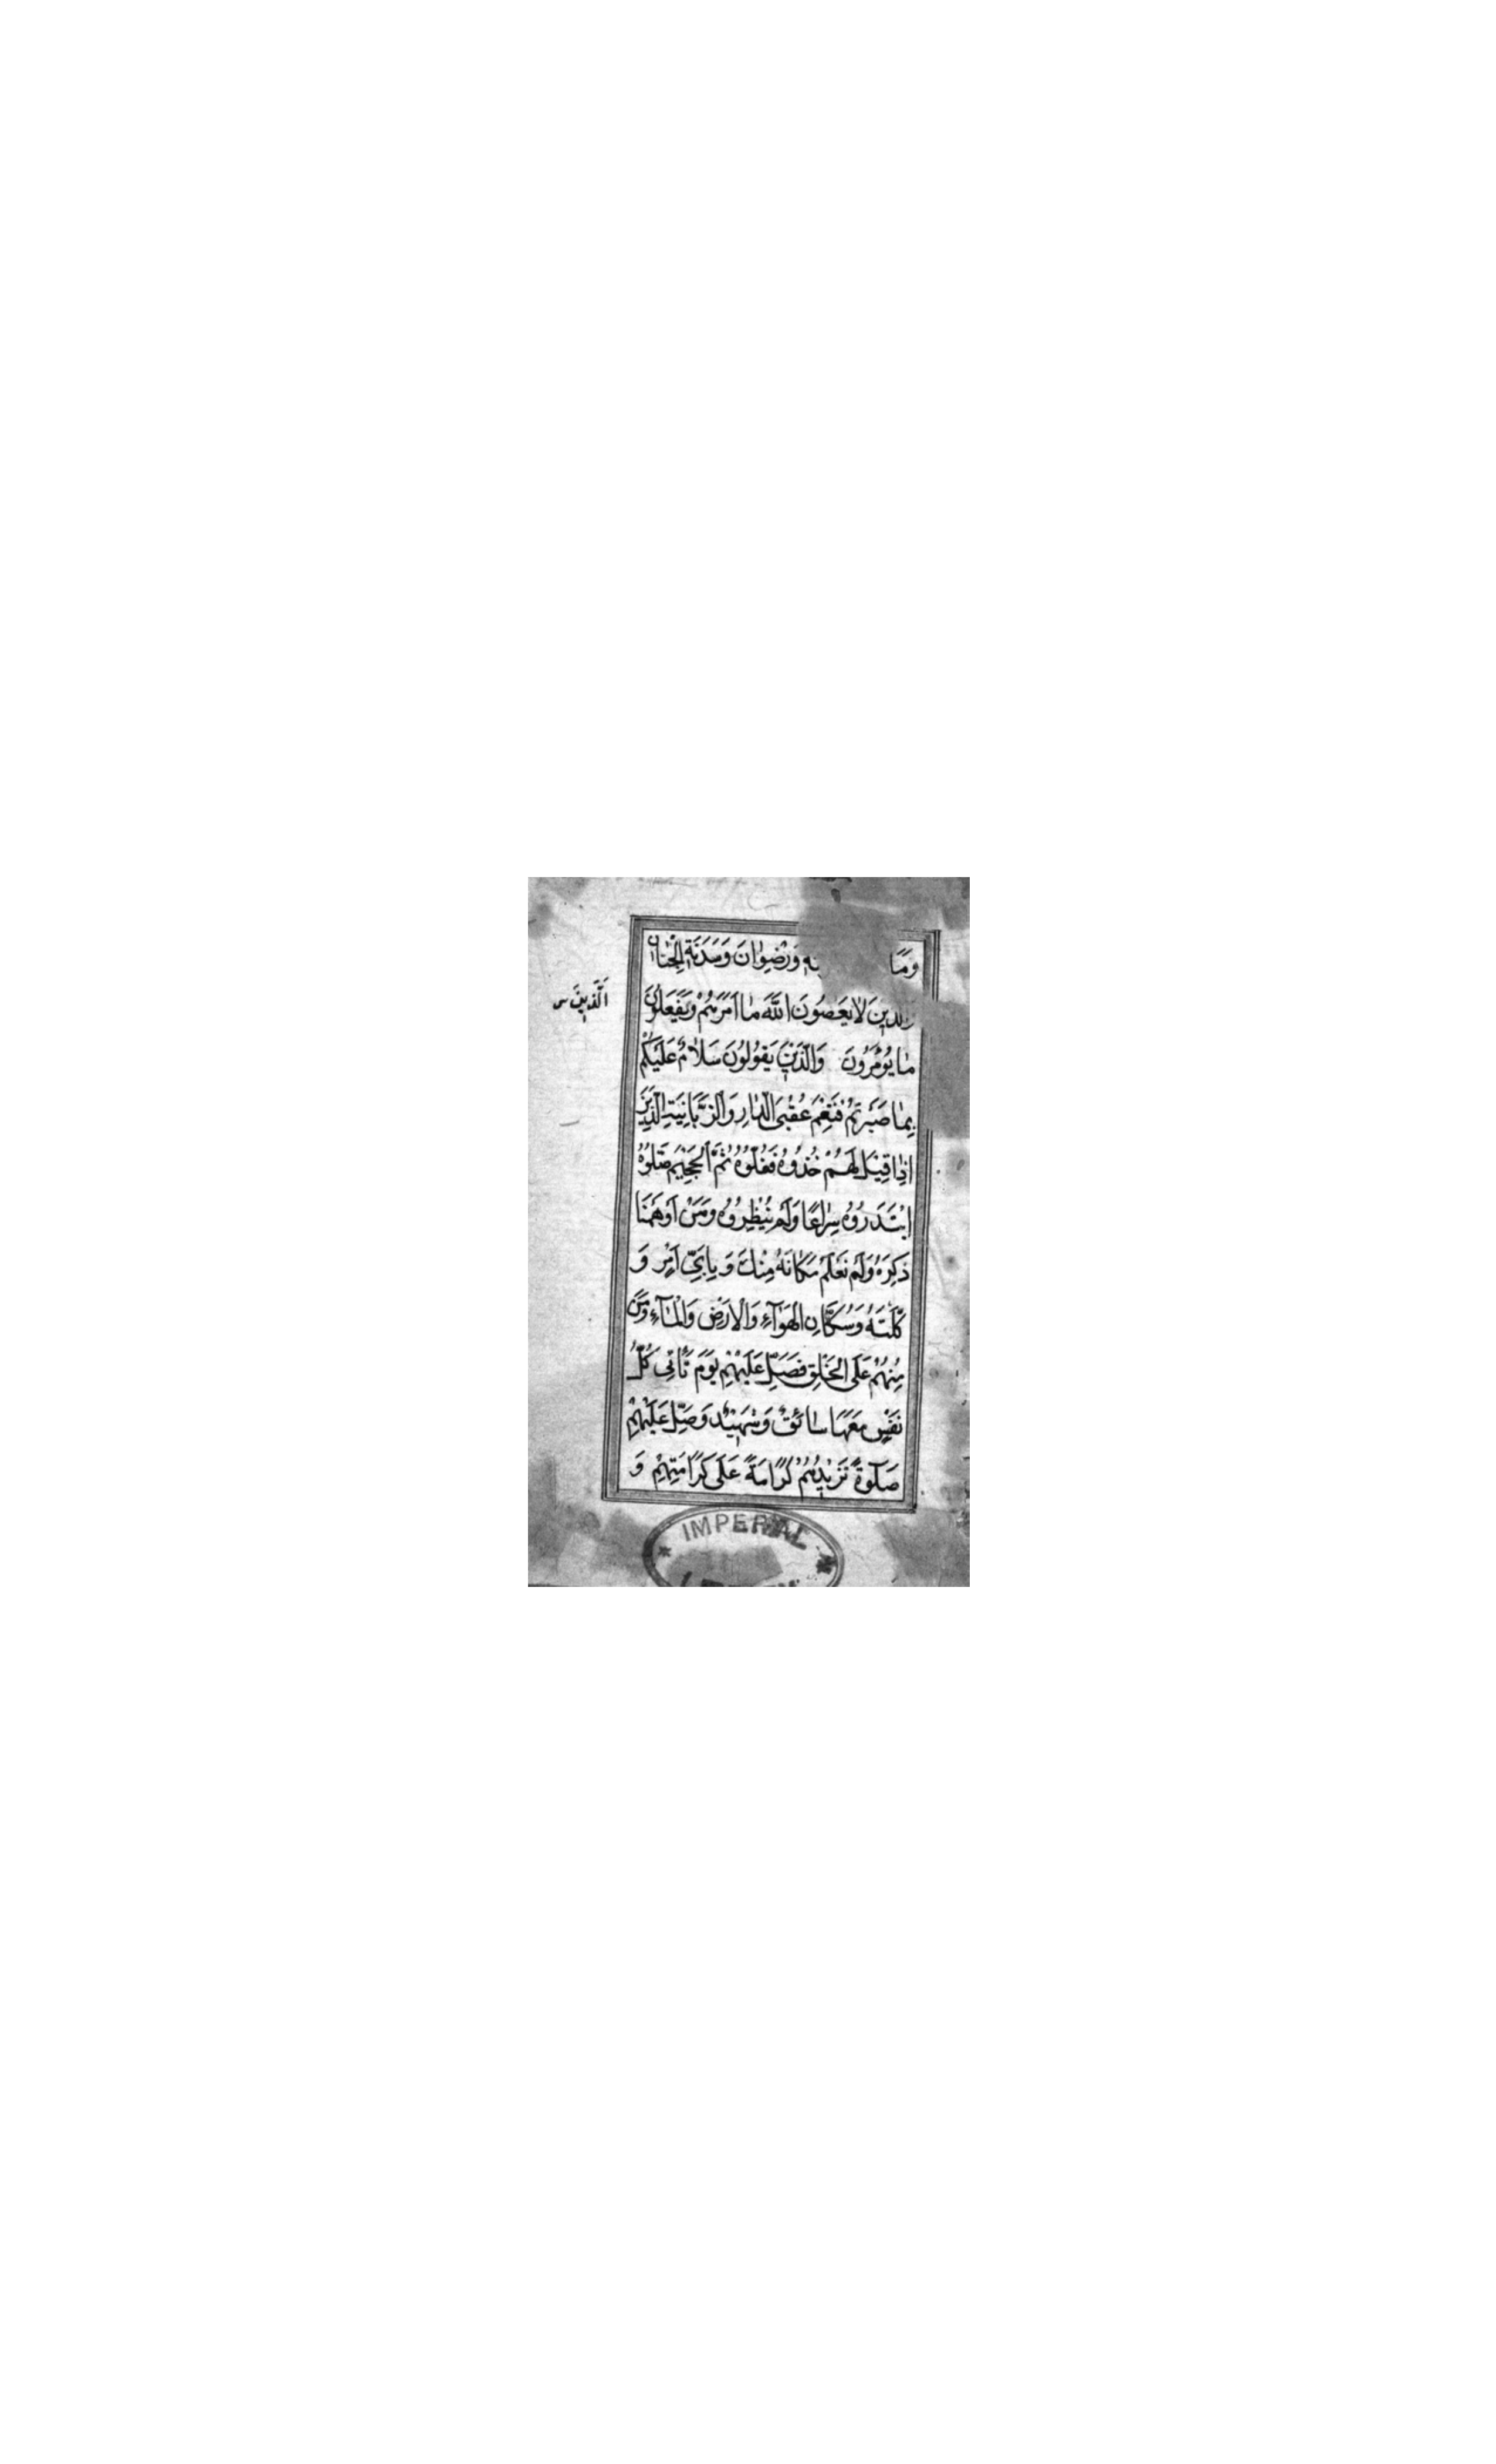 وَمَا نَةِ وَرِضْوَانَ وَسَدَنَةِ الْجِنَانِ
وَالَّذِينَ لَا يَعْصُونَ اللَّهَ مَا أَمَرَهُمْ وَيَفْعَلُونَ
الَّذِينَ
مَا يُؤْمَرُونَ وَالَّذِينَ يَقُولُونَ سَلَامٌ عَلَيْكُمْ
بِمَا صَبَرْتُمْ فَنِعْمَ عُقْبَى الدَّارِ وَالزَّبَانِيَةِ الَّذِينَ
إِذَا قِيلَ لَهُمْ خُذُوهُ فَغُلُّوهُ ثُمَّ الْجَحِيمَ صَلُّوهُ
ابْتَدَرُوهُ سِرَاعًا وَلَمْ يُنْظِرُوهُ وَمَنْ أَوْهَمْنَا
ذِكْرَهُ وَلَمْ نَعْلَمْ مَكَانَهُ مِنْكَ وَبِأَيِّ أَمْرٍ وَ
كَّلْتَهُ وَسُكَّانِ الْهَوَاءِ وَالْأَرْضِ وَالْمَاءِ وَمَنْ
مِنْهُمْ عَلَى الْخَلْقِ فَصَلِّ عَلَيْهِمْ يَوْمَ تَأْتِي كُلُّ
نَفْسٍ مَعَهَا سَائِقٌ وَشَهِيدٌ وَصَلِّ عَلَيْهِمْ
صَلَوةً تَزِيدُهُمْ كَرَامَةً عَلَى كَرَامَتِهِمْ وَ
IMPERIAL